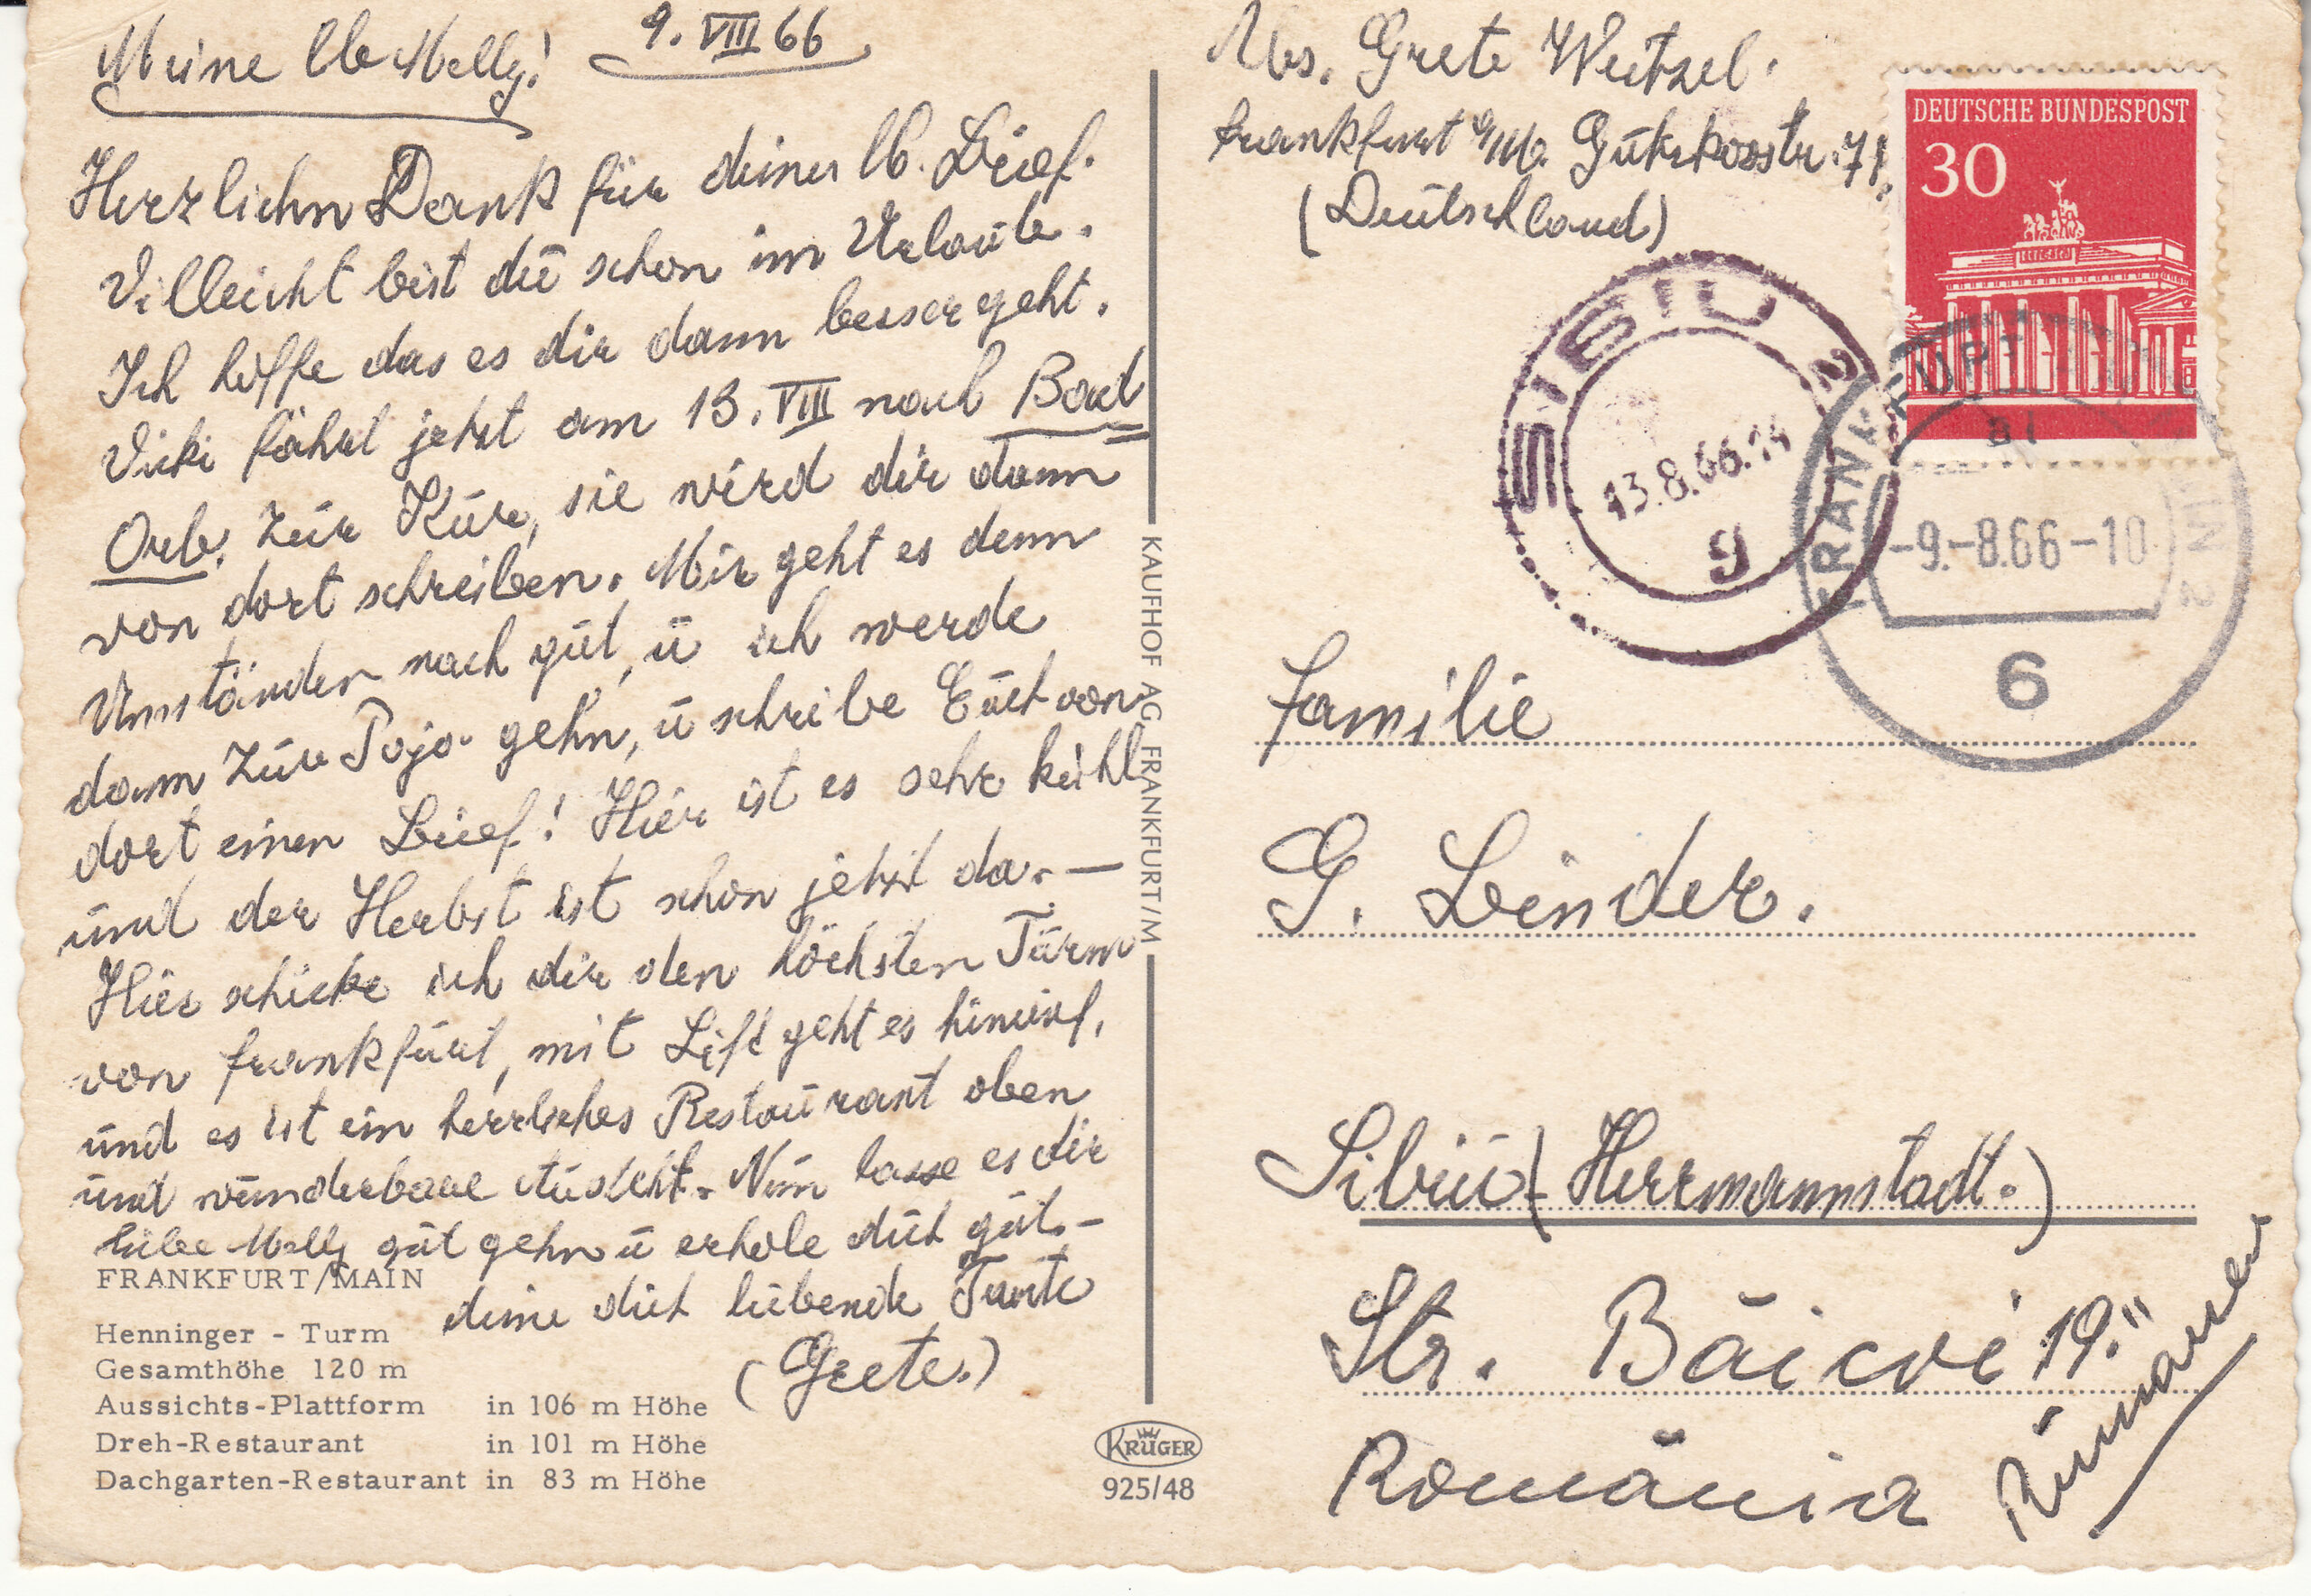 9. VIII 66
Meine lb Melly!
Herzlichn Dank für deinen lb. Brief.
Villeicht bist dū schon im Urlaūb.
Ich hoffe das es dir dann besser geht.
Vicki fährt jetzt am 13. VIII nach Bad
Orb. zūr Kūr, sie wird dir dann
von dort schreiben. Mir geht es denn
Umständen nach gūt, ū ich werde
dann zūr Pojo gehn, ū schreibe Eūch von
dort einen Brief! Hier ist es sehr kühl
ūnd der Herbst ist schon jetzt da. —
Hier schicke ich dir den höchsten Tūrm
von Frankfūrt, mit Lift geht es hinaūf,
ūnd es ist ein herrliches Restaūrant oben
ūnd wūnderbare Aūssicht. Nūn lasse es dir
liebe Melly gūt gehn ū erhole dich gūt. –
deine dich liebende Tante
(Grete.)
FRANKFURT/MAIN
Henninger - Turm
Gesamthöhe 120 m
Aussichts-Plattform in 106 m Höhe
Dreh-Restaurant in 101 m Höhe
Dachgarten-Restaurant in 83 m Höhe
KAUFHOF AG, FRANKFURT/M
KRÜGER
925/48
Abs. Grete Weitzel.
Frankfurt a/M. Gūtleūtstr. 71.
(Deūtschland)
DEUTSCHE BUNDESPOST
30
SIBIU 2
13.8.66.14
9
FRANKFURT
-9.-8.66-10
6
Familie
G. Binder.
Sibiū (Herrmannstadt.)
Str. Băicoi 19."
România
Rūmänien